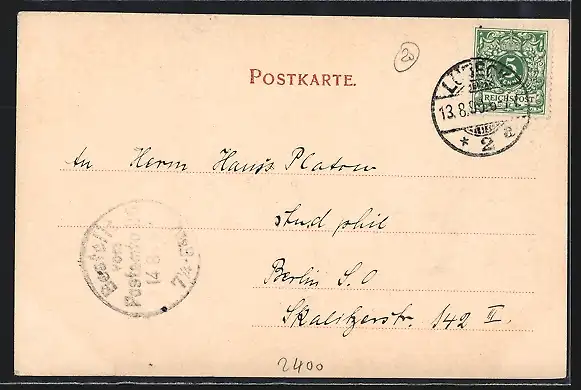 23
POSTKARTE.
5
REICHSPOST
LÜBECK
13.8.
* 2
An Herrn Hans Platow
stud phil
Berlin S.O
Skalitzerstr. 142 II.
Bestellt
vom
Postamte
14.8.
7¼-8½V
2400